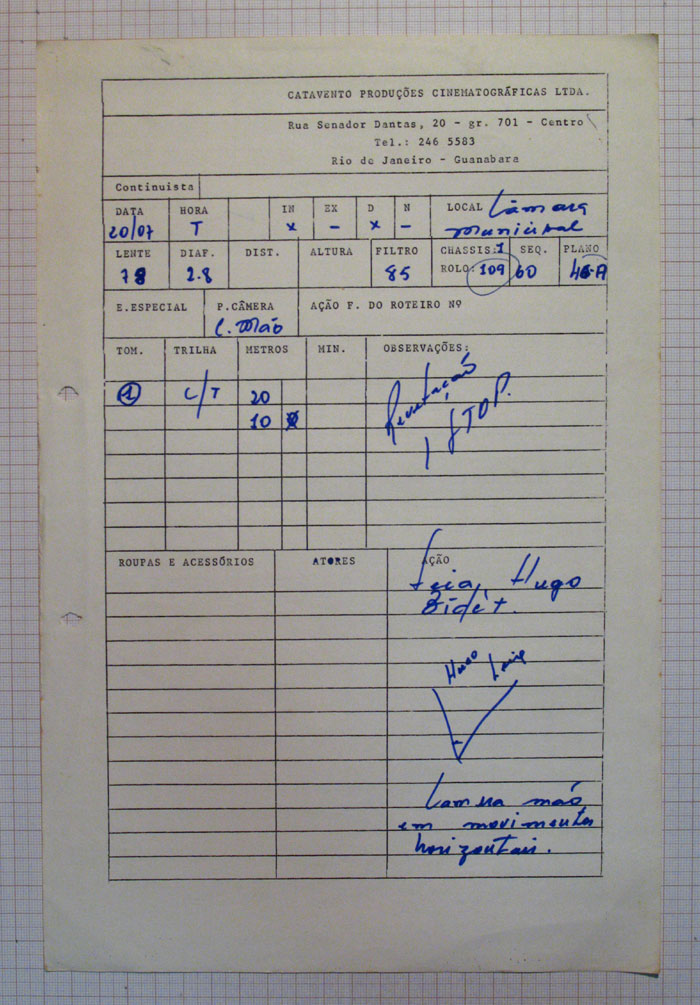 CATAVENTO PRODUÇÕES CINEMATOGRÁFICAS LTDA.
Rua Senador Dantas, 20 - gr. 701 - Centro
Tel.: 246 5583
Rio de Janeiro - Guanabara
Continuista
DATA HORA IN EX D N LOCAL Câmara
20/07 T x - x - Municipal
LENTE DIAF. DIST. ALTURA FILTRO CHASSIS:1 SEQ. PLANO
2.8 85 ROLO: 109 60
E.ESPECIAL P.CÂMERA AÇÃO F. DO ROTEIRO Nº
C. Mão
TOM. TRILHA METROS MIN. OBSERVAÇÕES:
1 C/T 20
10
1 STOP.
ROUPAS E ACESSÓRIOS ATORES AÇÃO
Hugo
Bidet.
Hugo
Camera mão
em movimentos
horizontais.